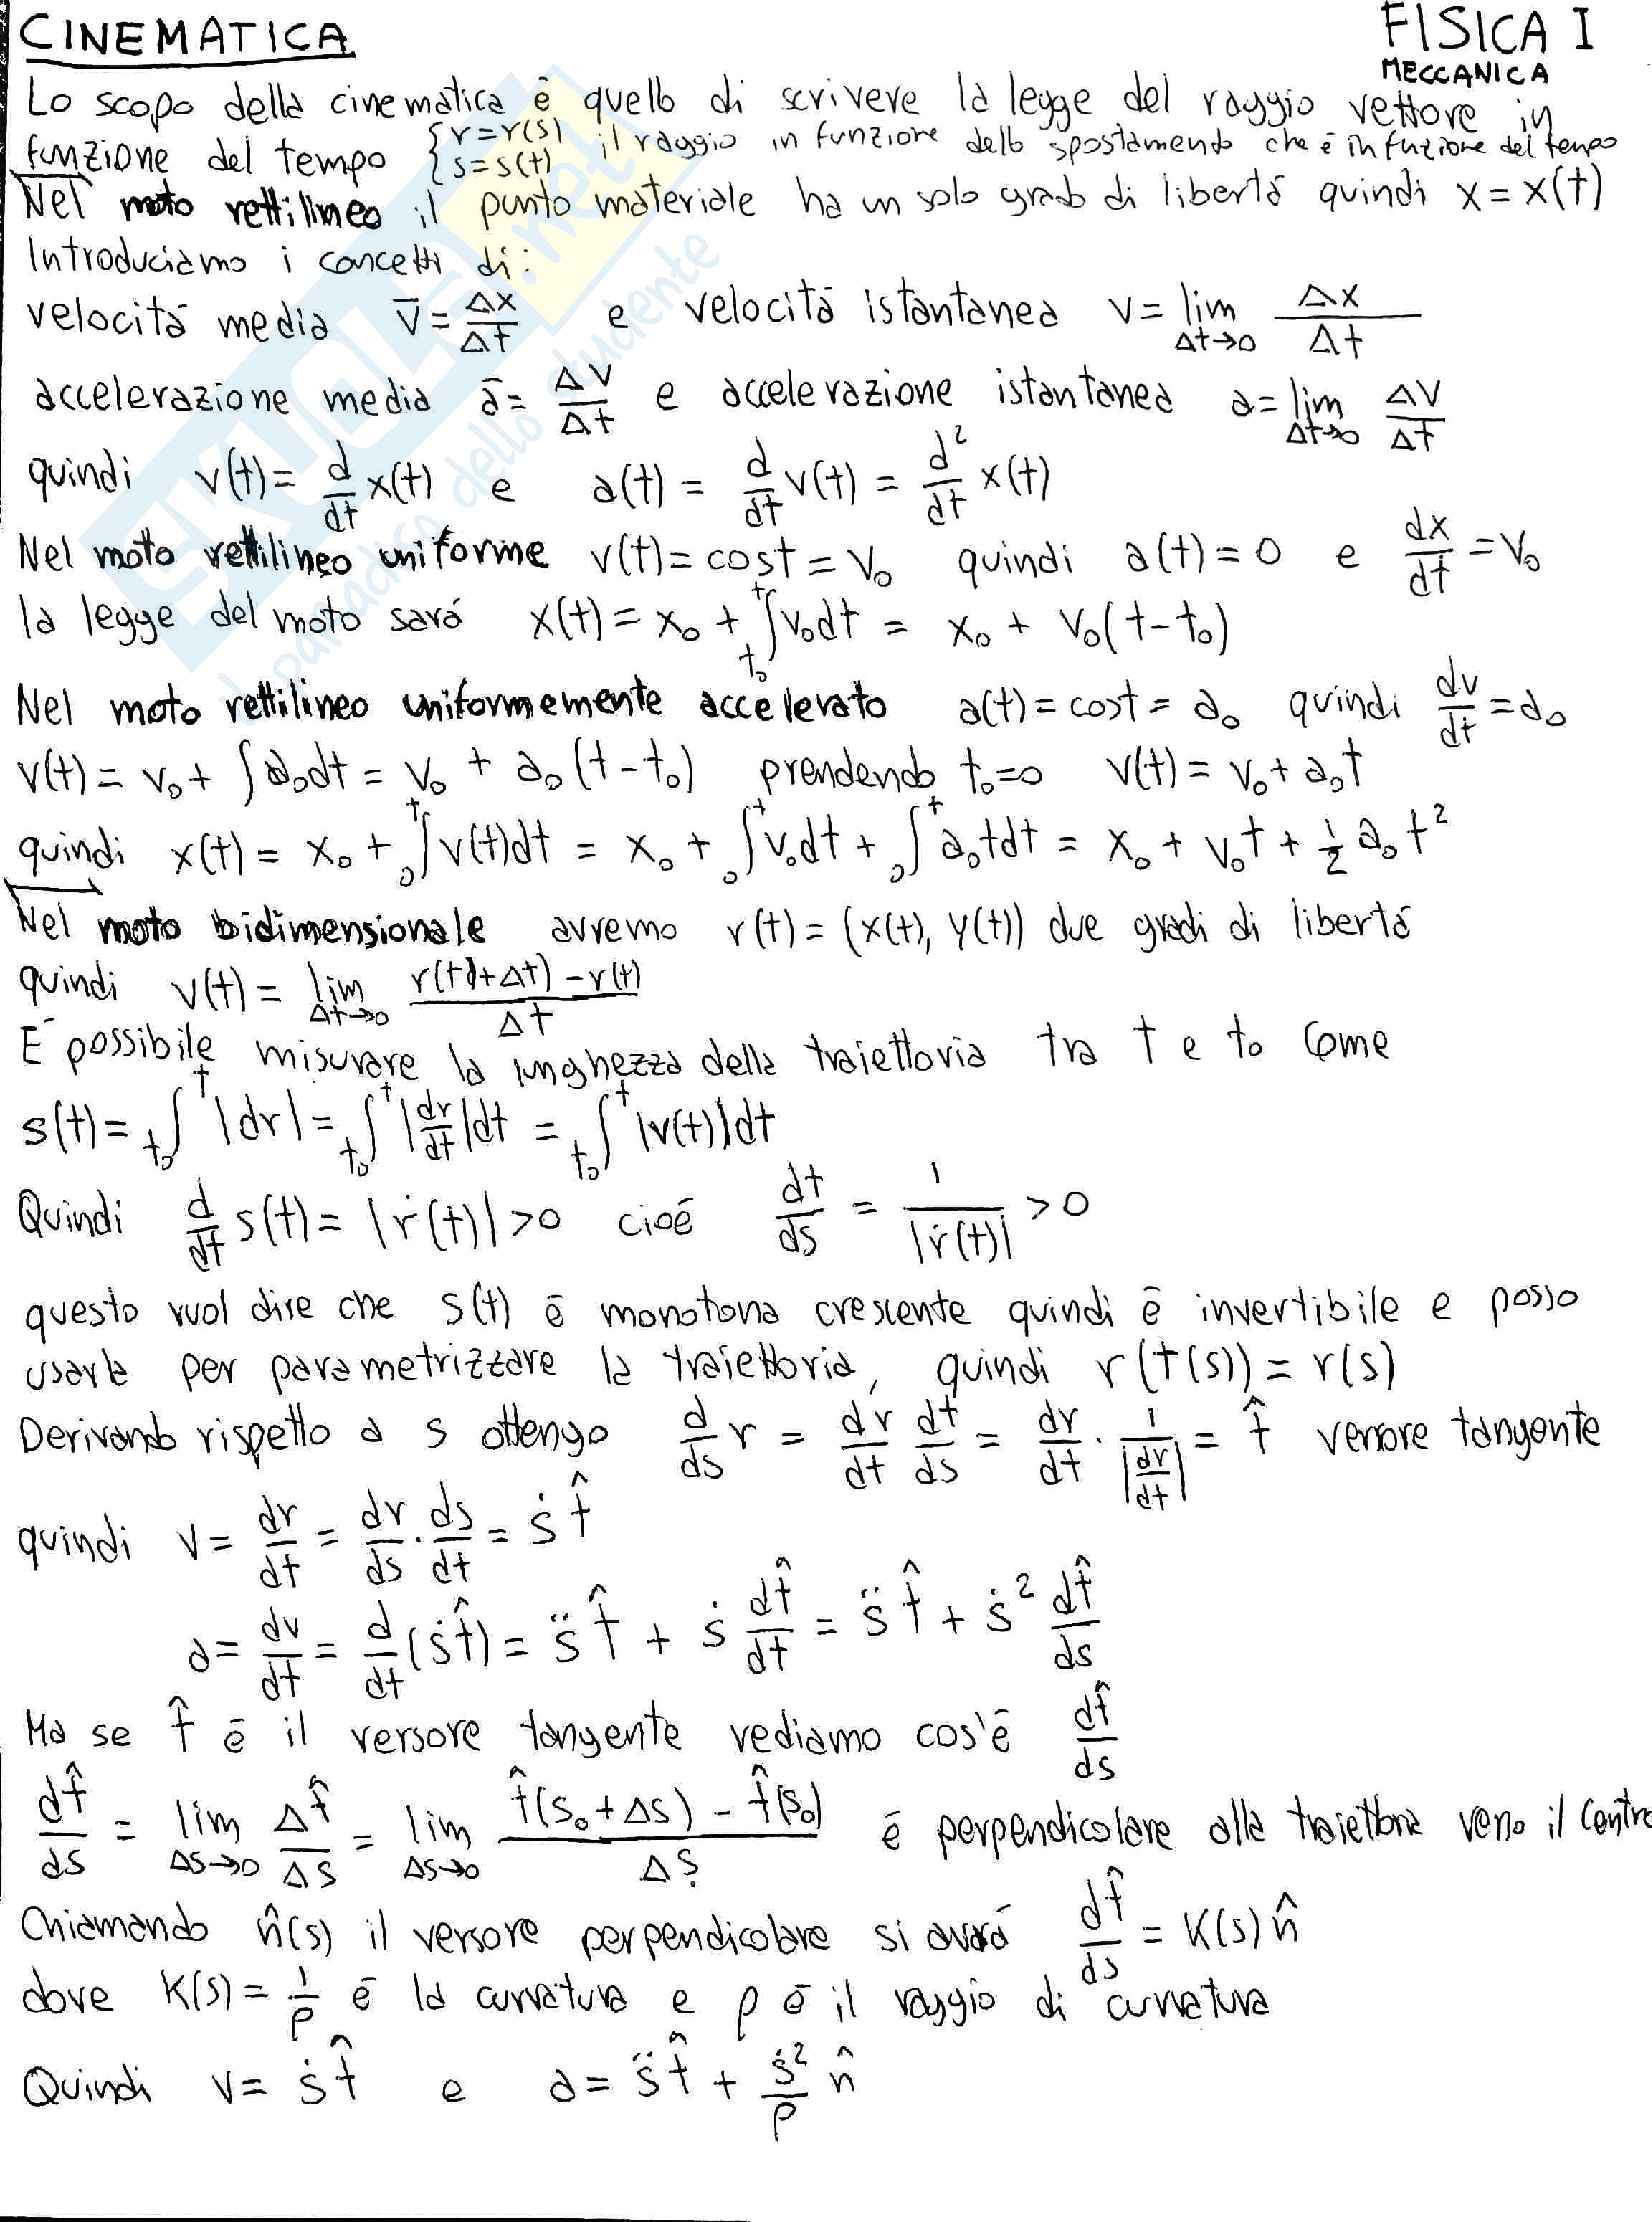 CINEMATICA
FISICA I
MECCANICA
Lo scopo della cinematica è quello di scrivere la legge del raggio vettore in
funzione del tempo {r=r(s) s=s(t) il raggio in funzione dello spostamento che è in funzione del tempo
Nel moto rettilineo il punto materiale ha un solo grado di libertà quindi x = x(t)
Introduciamo i concetti di:
velocità media v̄ = Δx/Δt e velocità istantanea v = lim Δt→0 Δx/Δt
accelerazione media ā = Δv/Δt e accelerazione istantanea a = lim Δt→0 Δv/Δt
quindi v(t) = d/dt x(t) e a(t) = d/dt v(t) = d²/dt x(t)
Nel moto rettilineo uniforme v(t) = cost = v₀ quindi a(t) = 0 e dx/dt = v₀
la legge del moto sarà x(t) = x₀ + t₀∫ᵗ v₀dt = x₀ + v₀(t-t₀)
Nel moto rettilineo uniformemente accelerato a(t) = cost = a₀ quindi dv/dt = a₀
v(t) = v₀ + ∫a₀dt = v₀ + a₀(t-t₀) prendendo t₀=0 v(t) = v₀ + a₀t
quindi x(t) = x₀ + ₀∫ᵗ v(t)dt = x₀ + ₀∫ᵗ v₀dt + ₀∫ᵗ a₀tdt = x₀ + v₀t + ½ a₀t²
Nel moto bidimensionale avremo r(t) = (x(t), y(t)) due gradi di libertà
quindi v(t) = lim Δt→0 (r(t)+Δt) - r(t))/Δt
E' possibile misurare la lunghezza della traiettoria tra t e t₀ come
s(t) = t₀∫ᵗ |dr| = t₀∫ᵗ |dr/dt|dt = t₀∫ᵗ |v(t)|dt
Quindi d/dt s(t) = |ṙ(t)| > 0 cioè dt/ds = 1/|ṙ(t)| > 0
questo vuol dire che s(t) è monotona crescente quindi è invertibile e posso
usarla per parametrizzare la traiettoria, quindi r(t(s)) = r(s)
Derivando rispetto a s ottengo d/ds r = dr/dt dt/ds = dr/dt · 1/|dr/dt| = t̂ versore tangente
quindi v = dr/dt = dr/ds · ds/dt = ṡ t̂
a = dv/dt = d/dt(ṡt̂) = s̈ t̂ + ṡ dt̂/dt = s̈ t̂ + ṡ² dt̂/ds
Ma se t̂ è il versore tangente vediamo cos'è dt̂/ds
dt̂/ds = lim Δs→0 Δt̂/Δs = lim Δs→0 (t̂(s₀+Δs) - t̂(s₀))/Δs è perpendicolare alla traiettoria verso il centro
Chiamando n̂(s) il versore perpendicolare si avrà dt̂/ds = K(s) n̂
dove K(s) = 1/ρ è la curvatura e ρ è il raggio di curvatura
Quindi v = ṡ t̂ e a = s̈ t̂ + ṡ²/ρ n̂
SKUOLA.net
il paradiso dello studente